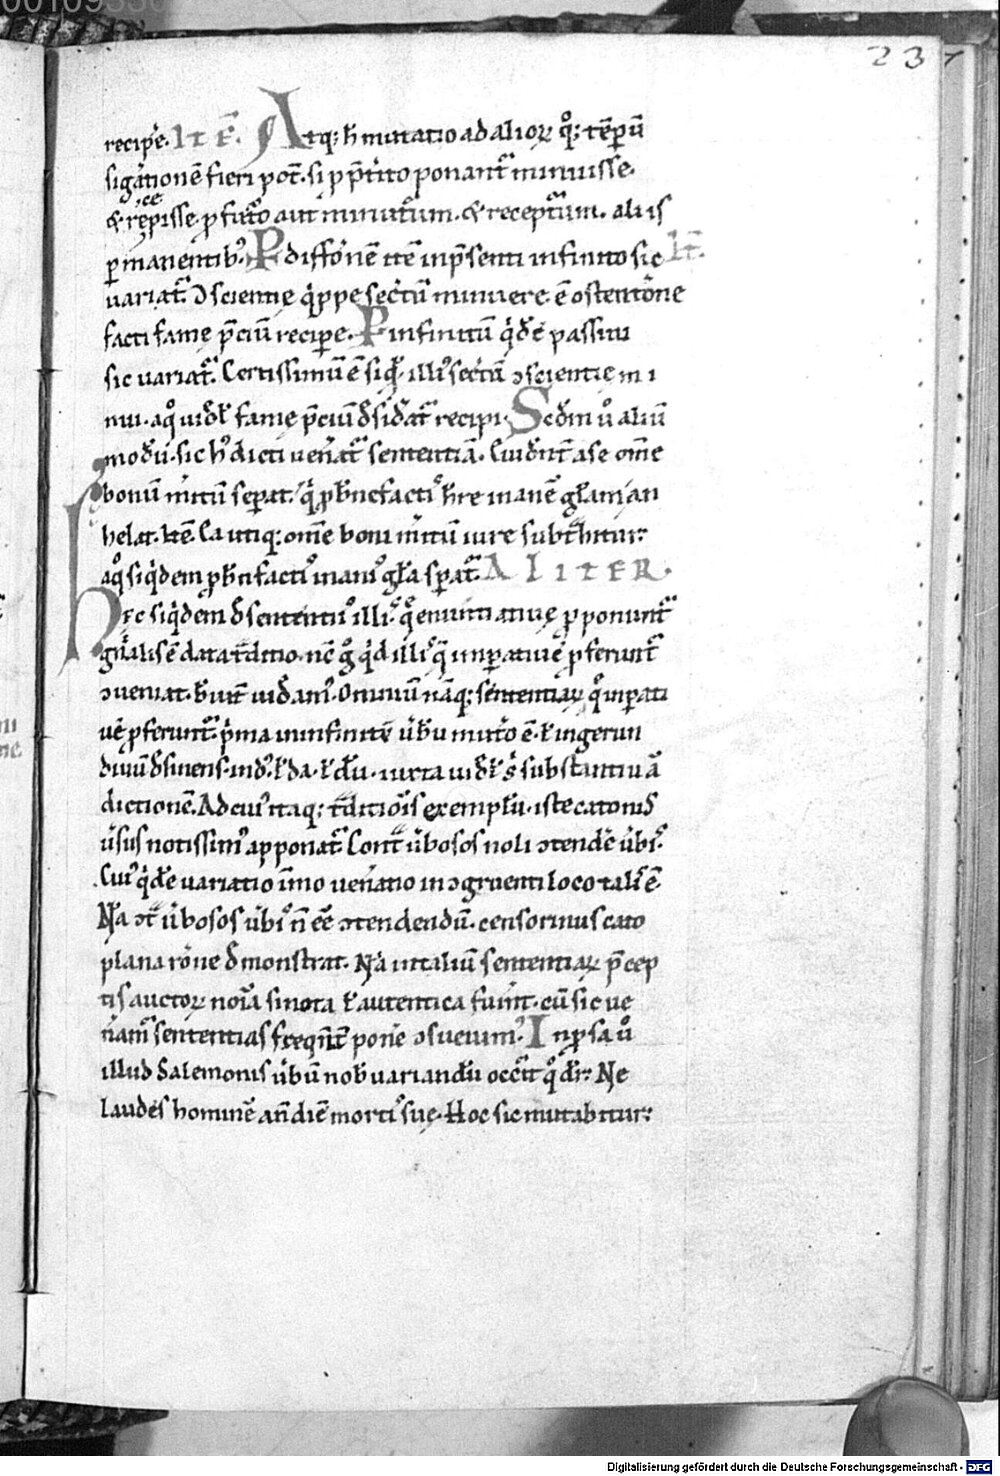 237
recipe. ITĒ. Atq; h̄ mutatio ad alioꝝ quoq; tēpū
sigationē fieri pot̄. si p p̄tito ponant̄ minuisse.
& recepisse. p futo aut minutum. & receptum. aliis
ꝑmanentib; P diffōnē itē in p̄senti infinito sic It̄.
uariat̄. ɔscientię q̇ppe sectū minuere ē ostentōne
facti famę p̄ciū recipe. P infinitū q̇dē passiui
sic uariat̄. Certissimū ē siq̇s illi' sectū ɔscientię mi
nui. a quo uid̄r famę p̄ciū d̄sidat̄ recipi. Scd̄m ů aliū
modū. sic h' dicti uen̄at̄ sententiā. Euidn̄t a se om̄e
bonū m̄itū sepat. q̇ p b̄nefacti' h̄re inanē gl̄am an
helat. Itē. Ca utiq; om̄e boni m̄itū iure subt̄hitur:
a quo siq̇dem p b̄nfacti' inani' gl̄a spat̄. ALITER.
Hęc siq̇dem d̄ sententii' illi' quę enuntiatiuę p ponunt̄
gn̄alis ē data t̄ditio. nē g̊ q̇d illi' q̄ inpatiuē pferunt̄
ɔueniat. b̄uit̄ uid̄am'. Omniū nāq; sententiaꝝ q̊ inpati
uē pferunt̄. p̄ma in infinitē ůbū mutō ē. ł in gerun
diuū d̄sinens. in do. ł da. ł dū. iuxta uid̄ł; s; substantiuā
dictionē. Ad cui' itaq; t̄ditiōis exemplū. iste catonis
ůsus notissim' apponat̄. Cont̄ ůbosos noli ɔtendē ůbis.
Cui' q̇dē uariatio īmo uen̄atio in ɔgruenti loco talis ē
Nā ɔt̄ ůbosos ůbis n̄ eē ɔtendendū. censorinus cato
plana rōne d̄monstrat. Nā in taliū sententiaꝝ p̄cep
tis auctoꝝ noīa si nota ł autentica fuint. cū sic ue
n̄am' sententias freqn̄t̄ ponē ɔsueuim'. In psa ů
illud Salemonis ůbū nob̄ uariandū occ̄it q̇ d̄r: Ne
laudes hominē an̄ diē mortis suę. Hoc sic mutabitur:
Digitalisierung gefördert durch die Deutsche Forschungsgemeinschaft - DFG